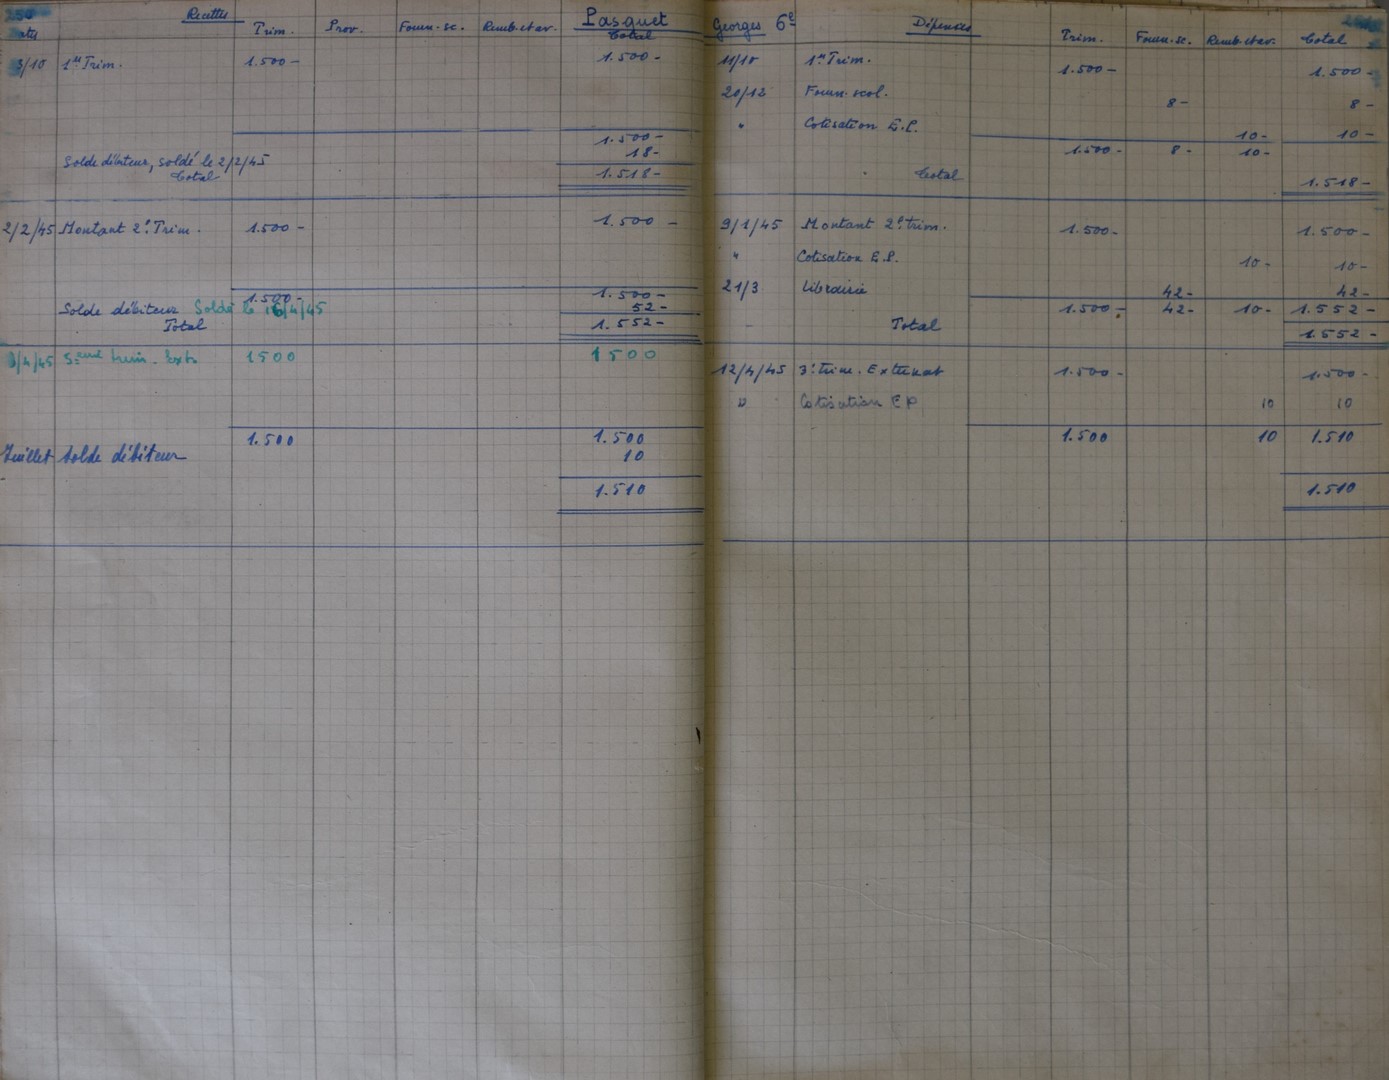 250 Recettes Pasquet
Date Trim. Prov. Fourn. sc. Remb. et av. Total
3/10 1er Trim. 1.500 - 1.500 -
1.500 -
18 -
Solde débiteur, soldé le 2/2/45
Total 1.518 -
2/2/45 Montant 2e Trim. 1.500 - 1.500 -
1.500 - 1.500 -
Solde débiteur Soldé le 16/4/45 52 -
Total 1.552 -
/4/45 trim. Ext. 1500 1500
1.500 1.500
Juillet Solde débiteur 10
1.510
Georges 6e Dépenses
Trim. Fourn. sc. Remb. et av. Total
11/10 1er Trim. 1.500 - 1.500 -
20/12 Fourn. scol. 8 - 8 -
" Cotisation E.P. 10 - 10 -
1.500 - 8 - 10 -
Total 1.518 -
9/1/45 Montant 2e trim. 1.500 - 1.500 -
" Cotisation E.P. 10 - 10 -
21/3 Librairie 42 - 42 -
1.500 - 42 - 10 - 1.552 -
Total 1.552 -
12/4/45 3e trim. Externat 1.500 - 1.500 -
" Cotisation EP 10 10
1.500 10 1.510
1.510